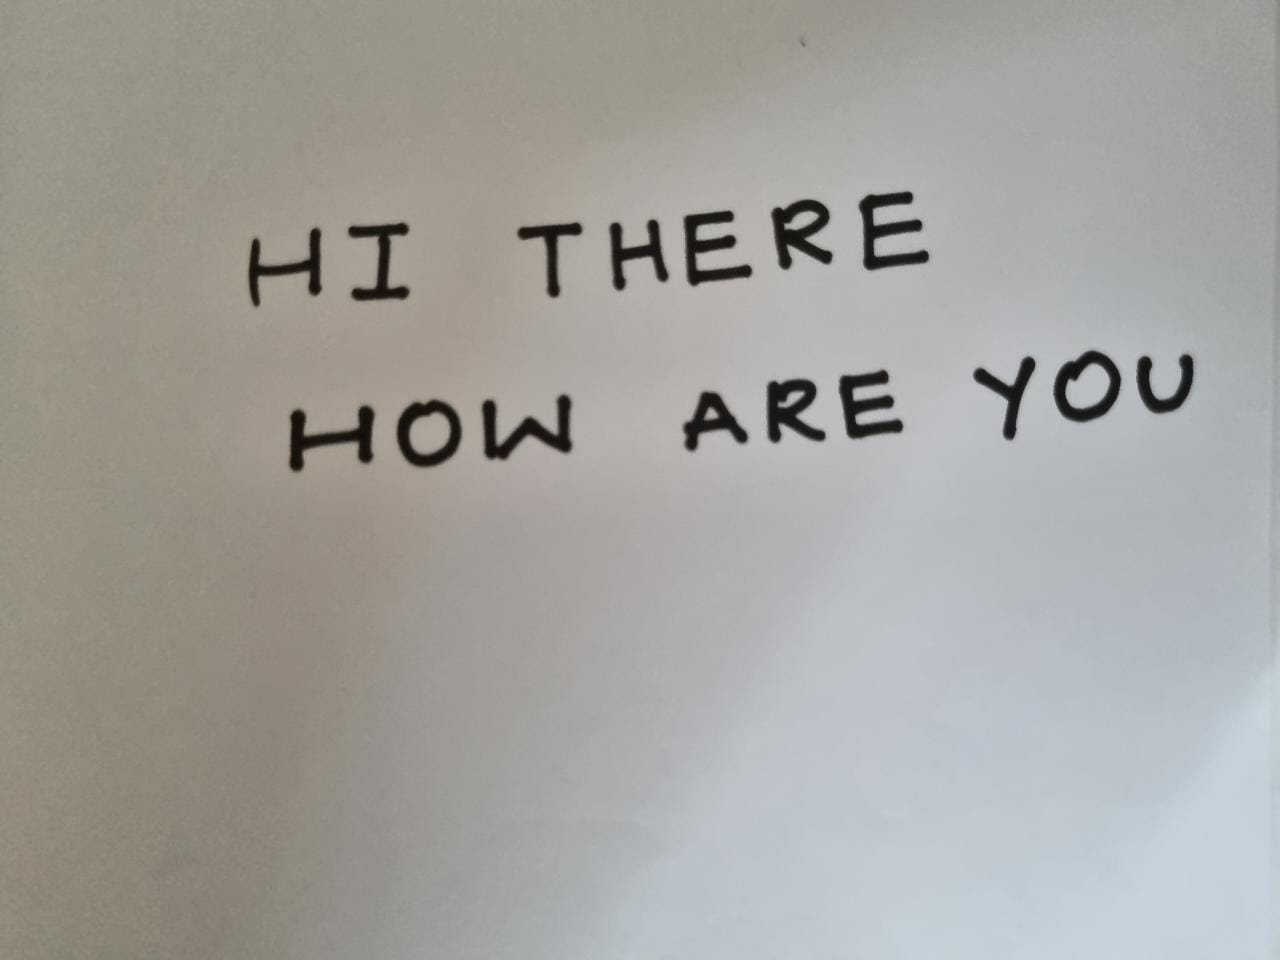 HI THERE
HOW ARE YOU